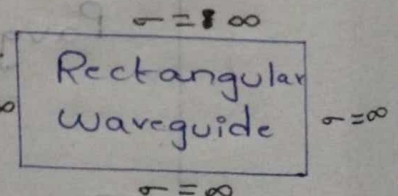 σ = ∞
Rectangular
waveguide
σ = ∞
σ = ∞